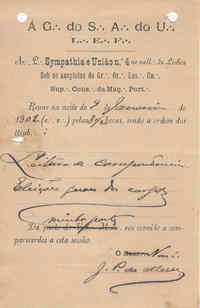 Á G∴ do S∴ A∴ do U∴
L∴ E∴ F∴
A R∴ L∴ Sympathia e União n.º 4 ao vall∴ de Lisboa
Sob os auspicios do Gr∴ Or∴ Lus∴ Un∴
Sup∴ Cons∴ da Maç∴ Port∴
Reune na noite de 2 de
1902 (e∴ v∴) pelas horas, sendo a ordem dos
trab∴
Leitura de correspondencia
Eleições geraes dos corpos
minha parte
Da parte do vos convido a com-
parecerdes a esta sessão.
O
J. P. de